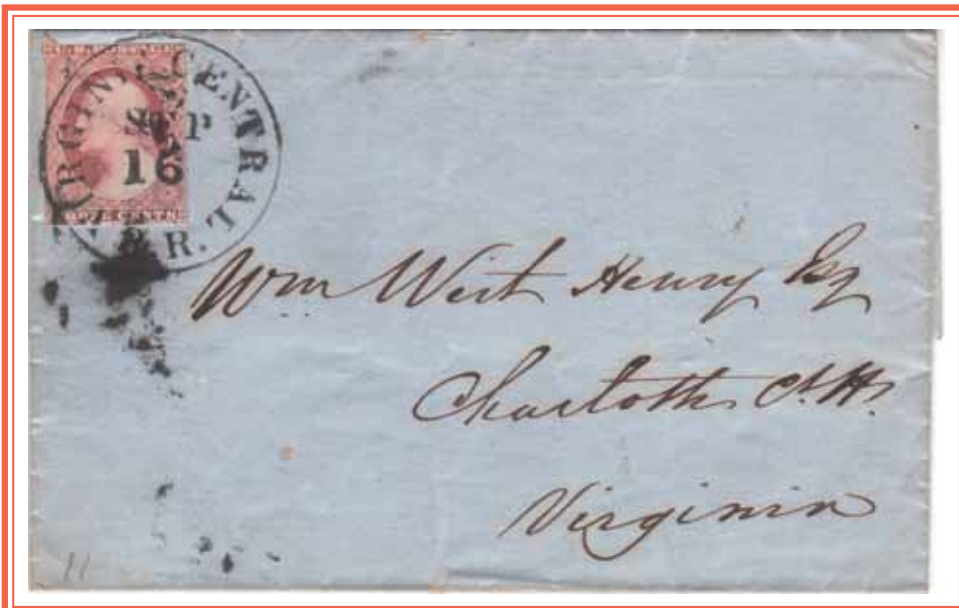 VIRGINIA CENTRAL R.R.
SEP
16
THREE CENTS
Wm Wirt Henry Esq
Charlotte C.H.
Virginia
11